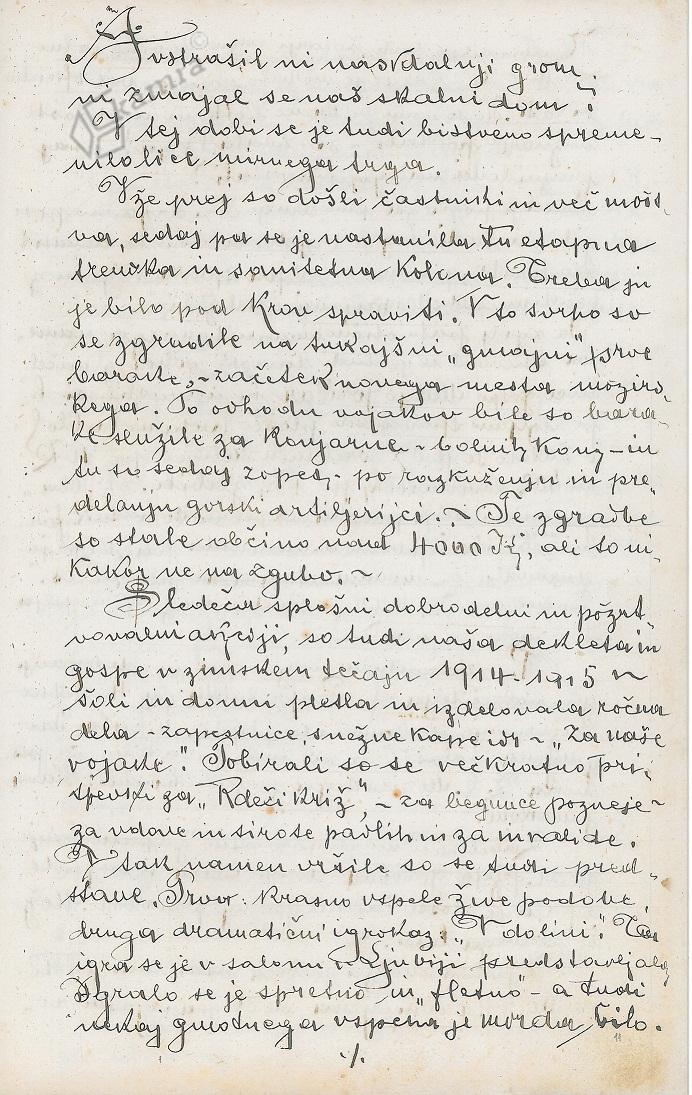 Avstrašil ni nas vdalnji grom.
ni zmajal se naš skalni dom!
V tej dobi se je tudi bistveno spreme-
nilo lice mirnega trga.
Vže prej so došli častniki in več mošt-
va, sedaj pa se je nastanila tu etapna
trenska in sanitetna kolona. Treba ju
je bilo pod krov spraviti. V to svrho so
se zgradile na tukajšni „gmajni" prve
barake, - začetek novega mesta mozirs-
kega. Po odhodu vojakov bile so bara-
ke služile za konjarne - bolnih konj - in
tu so sedaj zopet, - po razkuženju in pre-
delanju gorski artiljerijci. - Te zgradbe
so stale občino nad 4000 K, ali to ni-
kakor ne na zgubo. -
Sledeča splošni dobrodelni in požrt-
vovalni akciji, so tudi naša dekleta in
gospe v zimskem tečaju 1914-1915 v
šoli in doma pletla in izdelovala ročna
dela - zapestnice, snežne kape itd - „za naše
vojake". Pobirali so se večkratno pri-
spevki za „Rdeči križ", - za begunce pozneje -
za vdove in sirote padlih in za invalide.
V tak namen vršile so se tudi pred-
stave. Prva: krasno vspele žive podobe,
druga dramatični igrokaz: „V dolini". Ta
igra se je v salonu v Ljubiji predstavljala
Igralo se je spretno in „fletno" - a tudi
nekaj gmotnega vspeha je morda bilo.
./.
kamra